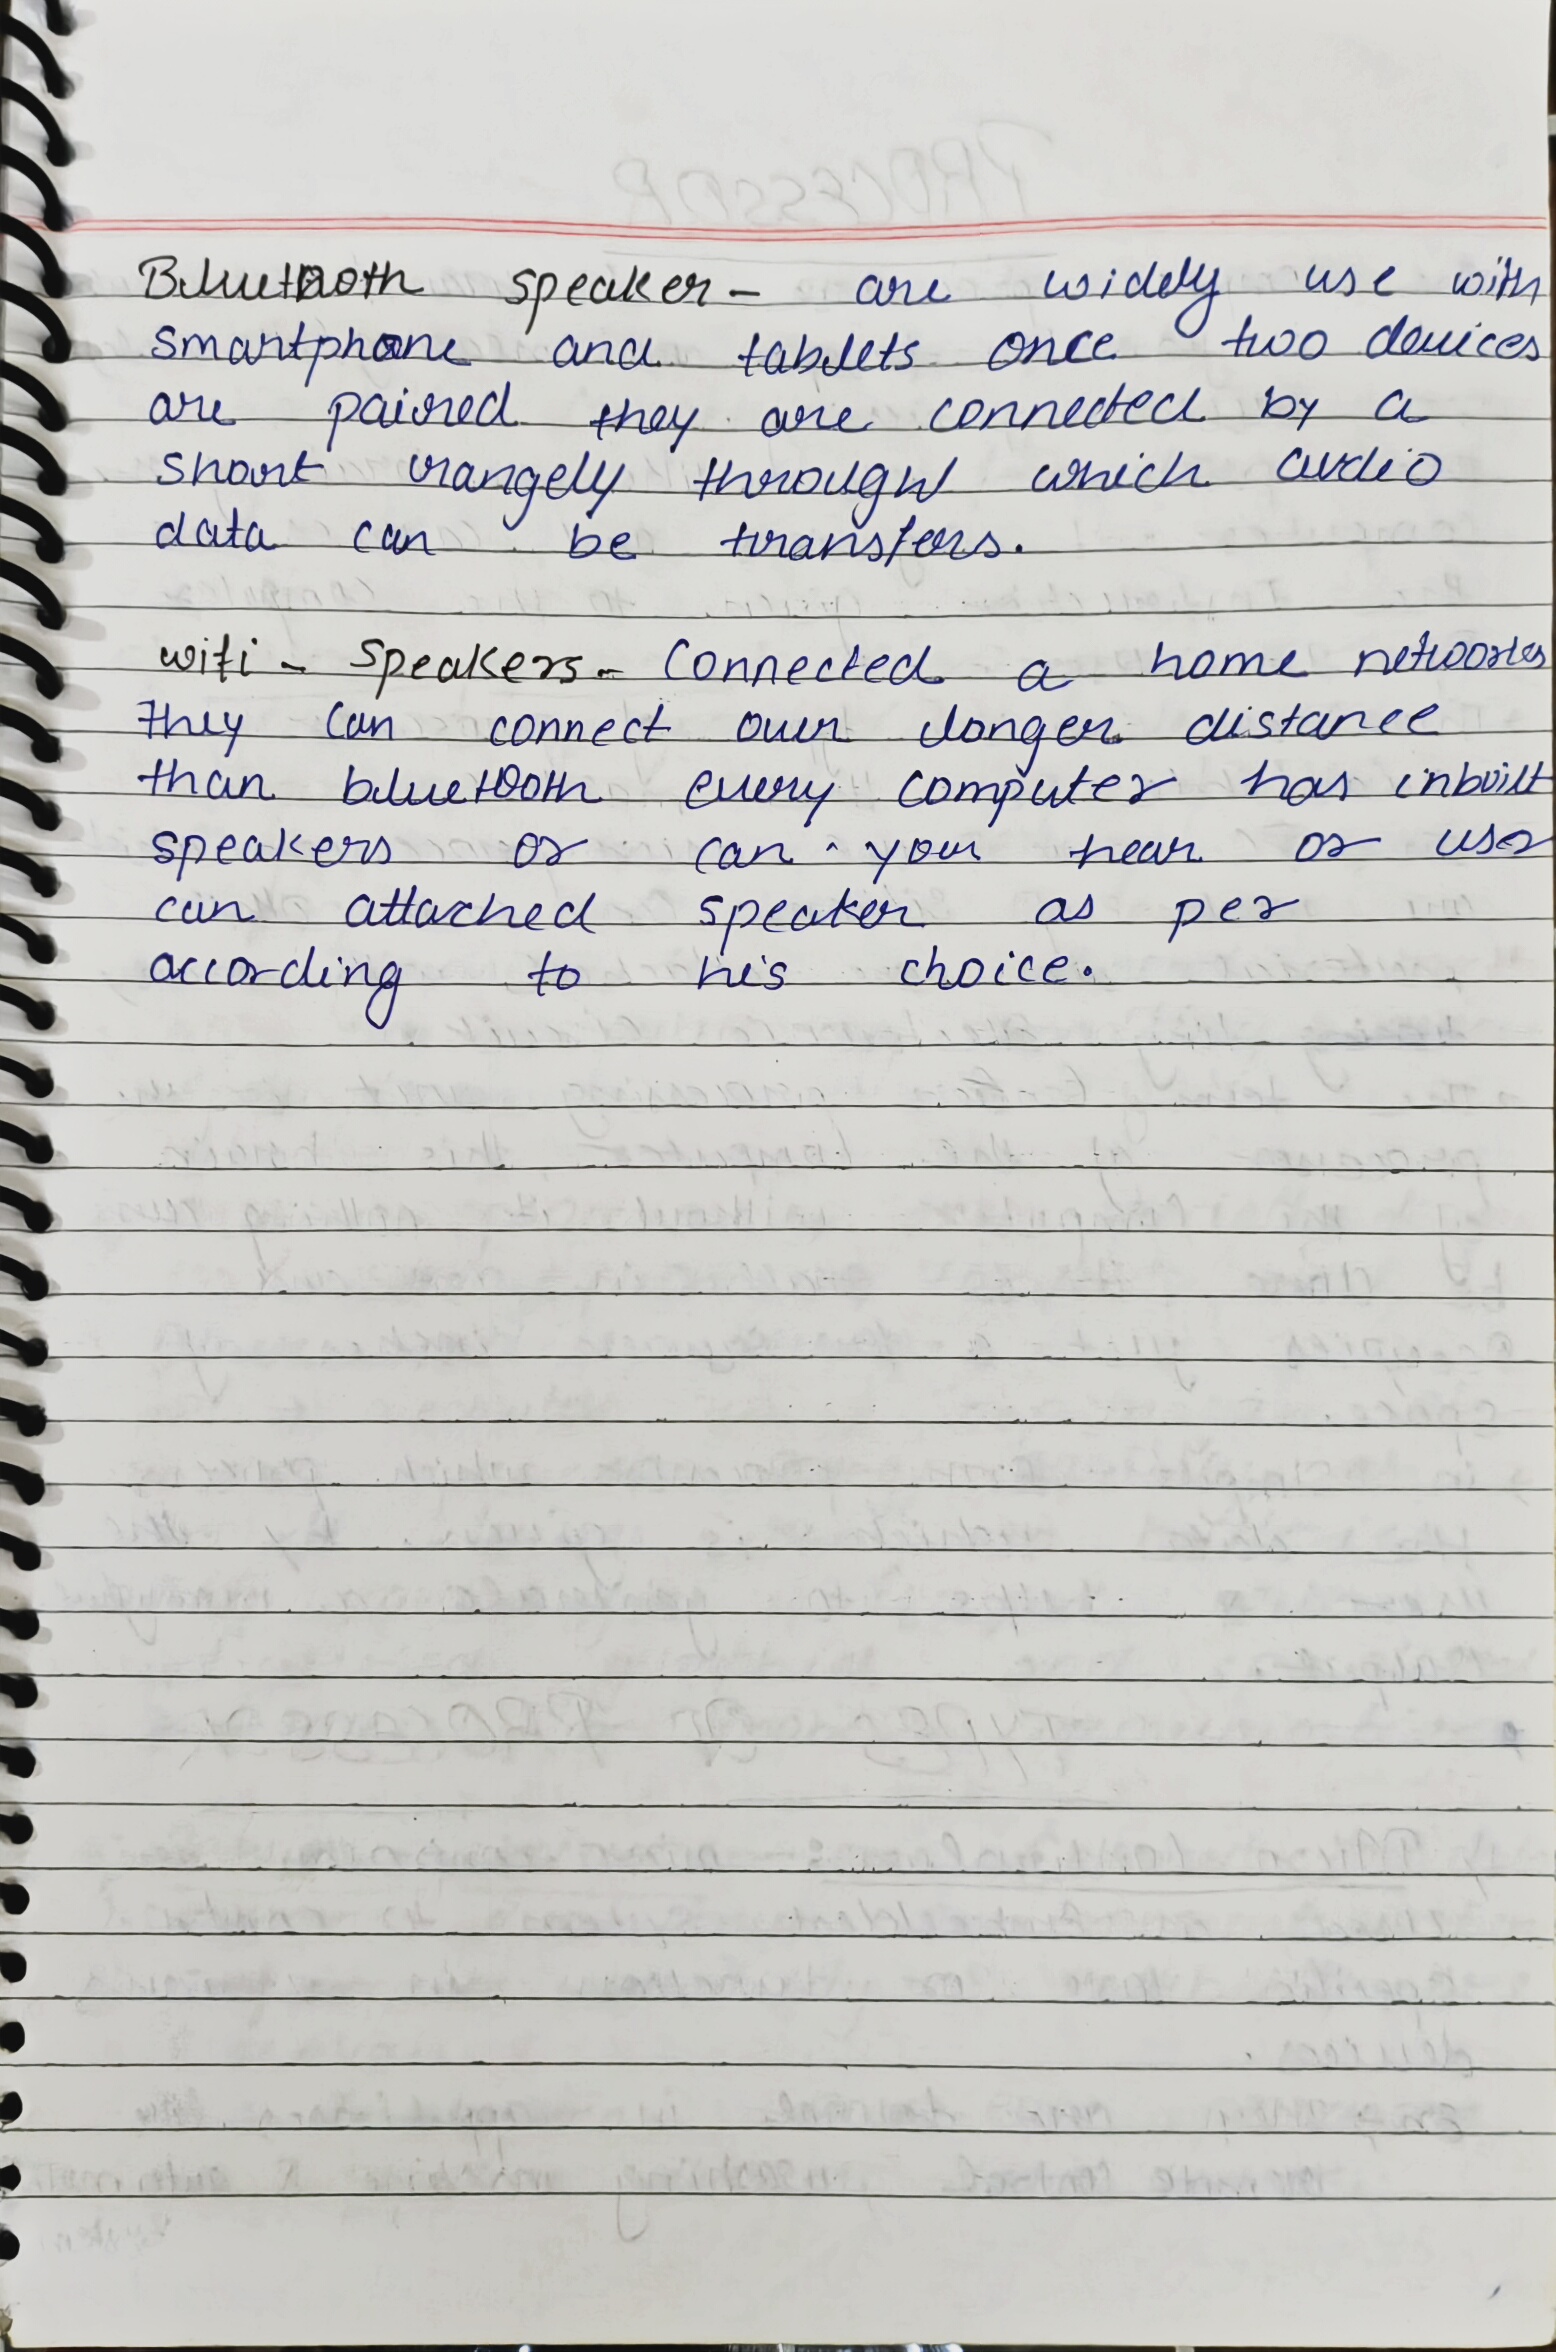 Bluetooth speaker - are widely use with
smartphone and tablets once two devices
are paired they are connected by a
short rangely through which audio
data can be transfers.
wifi - speakers - Connected a home networks
They can connect over longer distance
than bluetooth every computer has inbuilt
speakers or can you hear or user
can attached speaker as per
according to his choice.